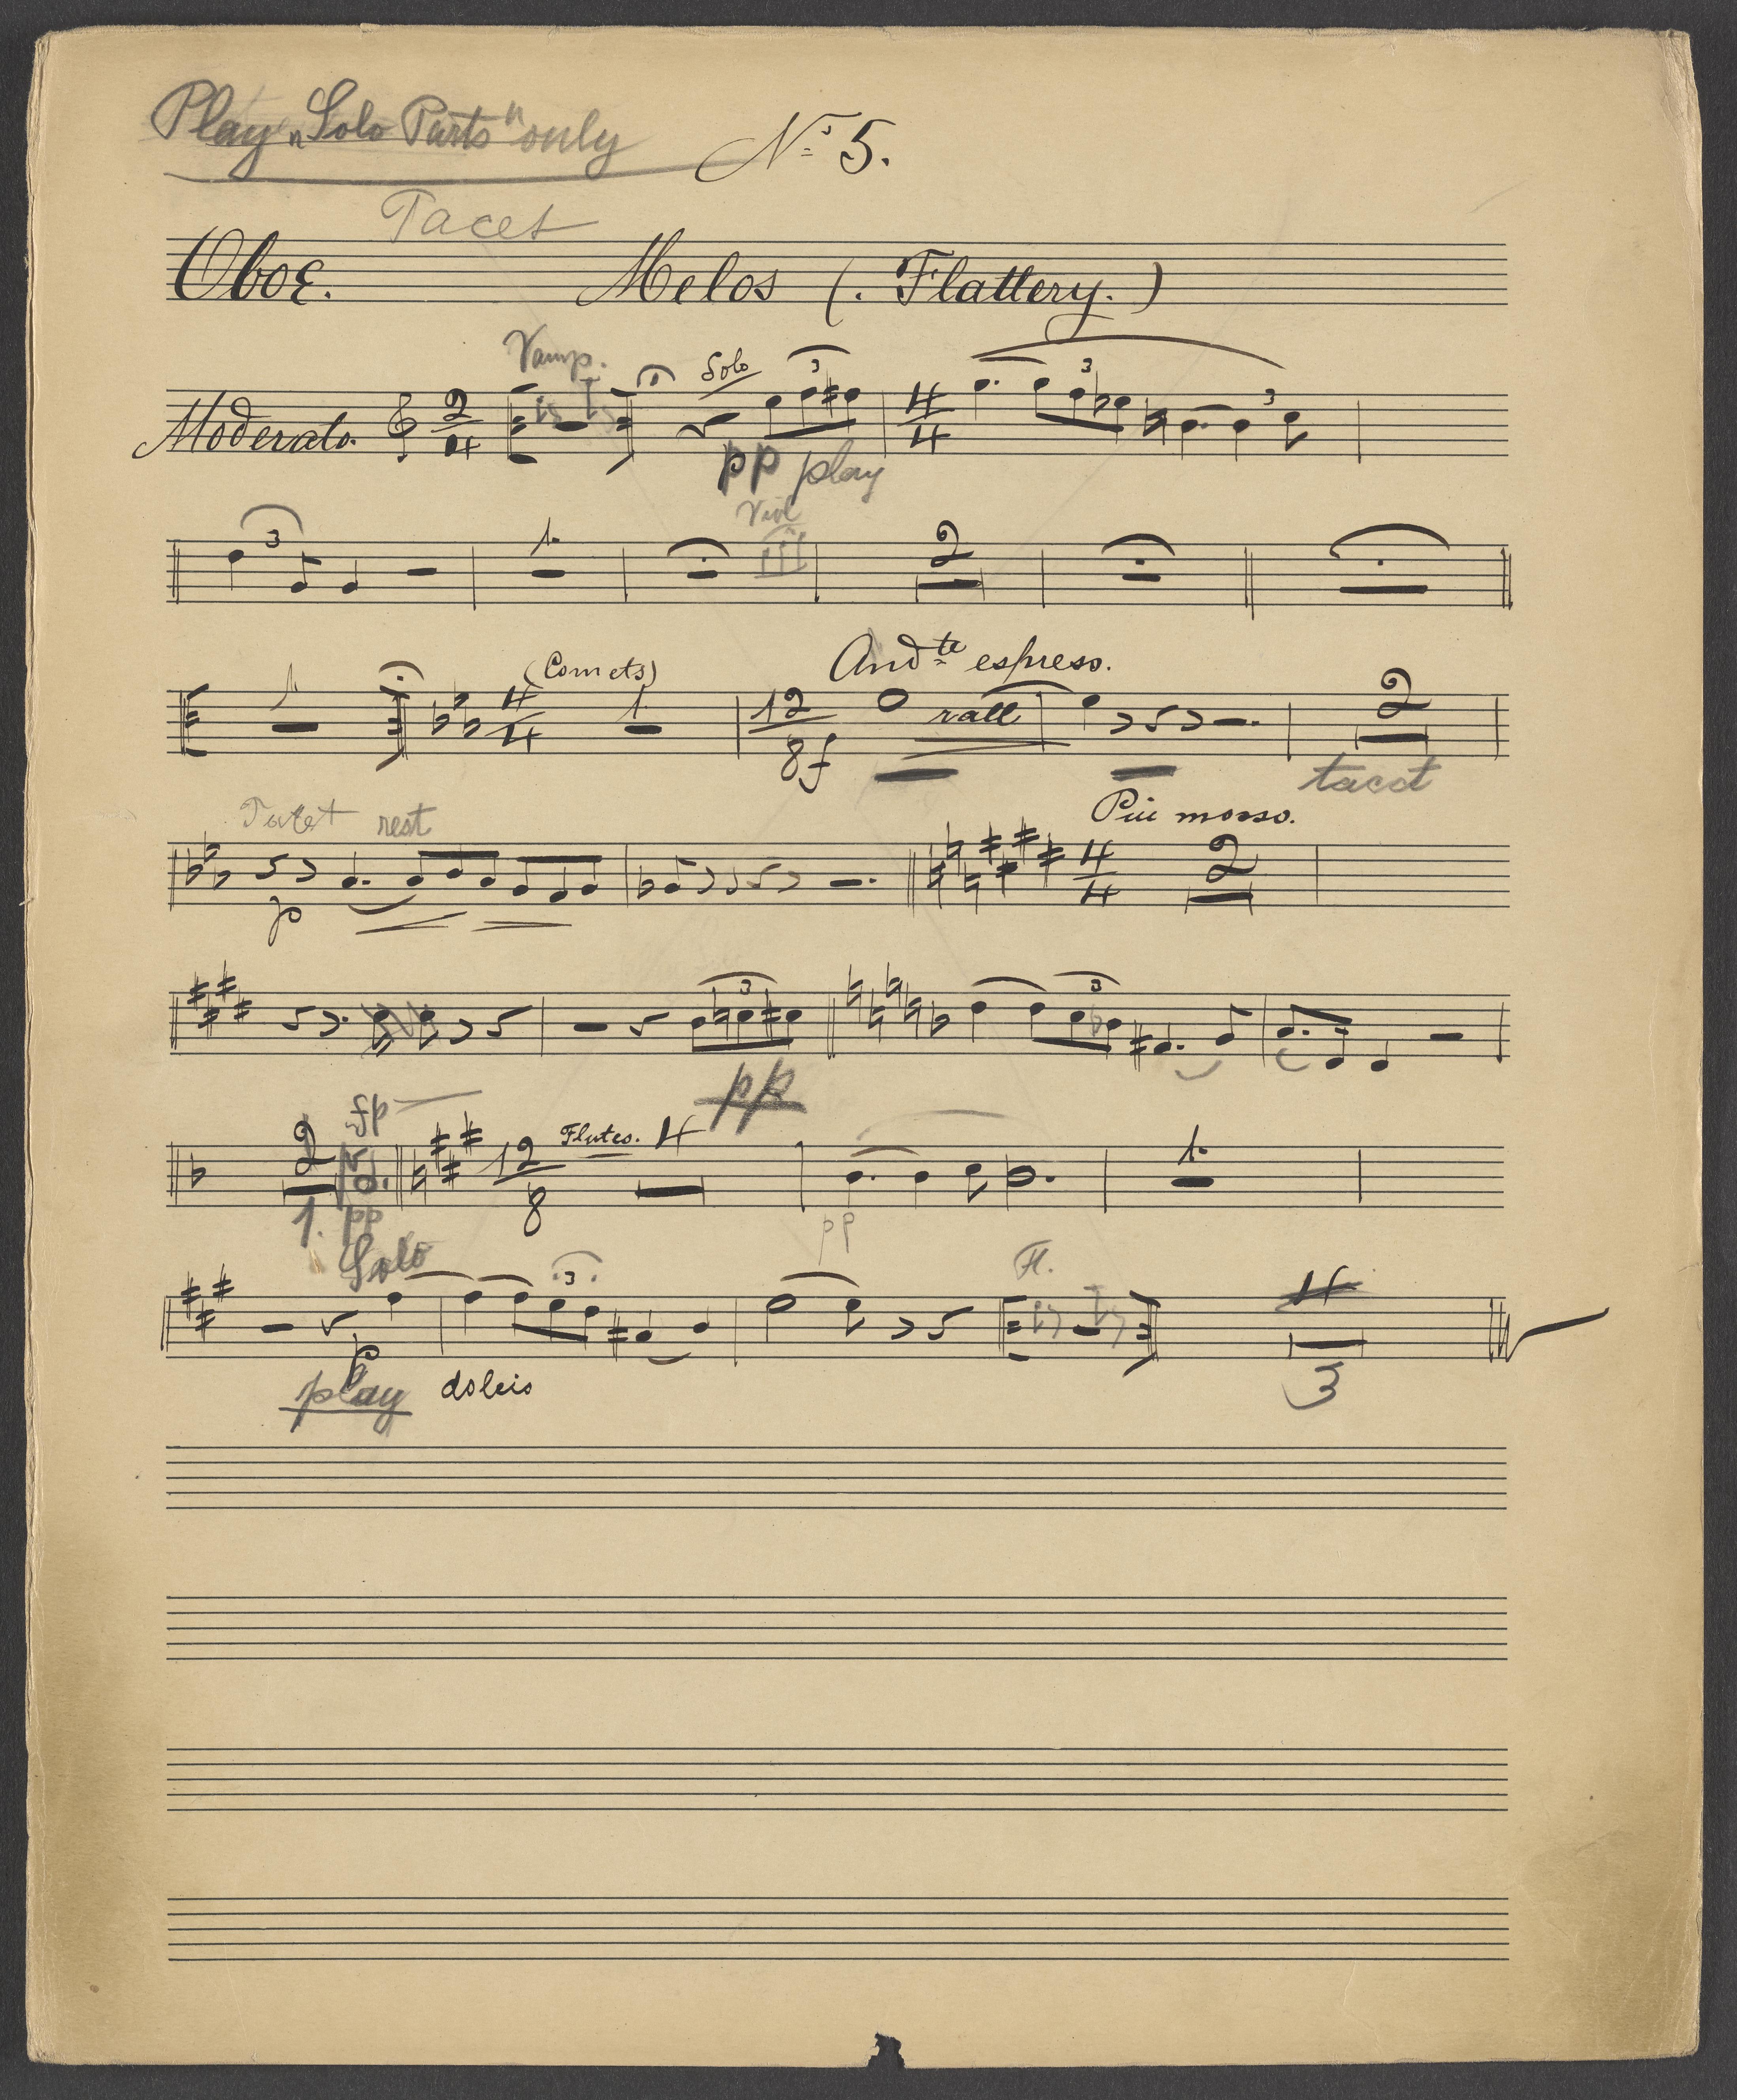 Play „Solo Parts" only
No 5.
Tacet
Oboe. Melos (. Flattery.)
Vamp. Solo 3 3 3
Moderato. 2/4 4/4
pp play
Viol
3 1. 2
(Cornets) And.te espreso.
1 4/4 1. 12/8 f rall 2
tacet
Tacet rest Piu mosso.
p 4/4 2
3 3
pp
fp
2 12/8 Flutes. 4 1.
1. pp pp
Solo Fl.
3 4
p
play dolcis 3